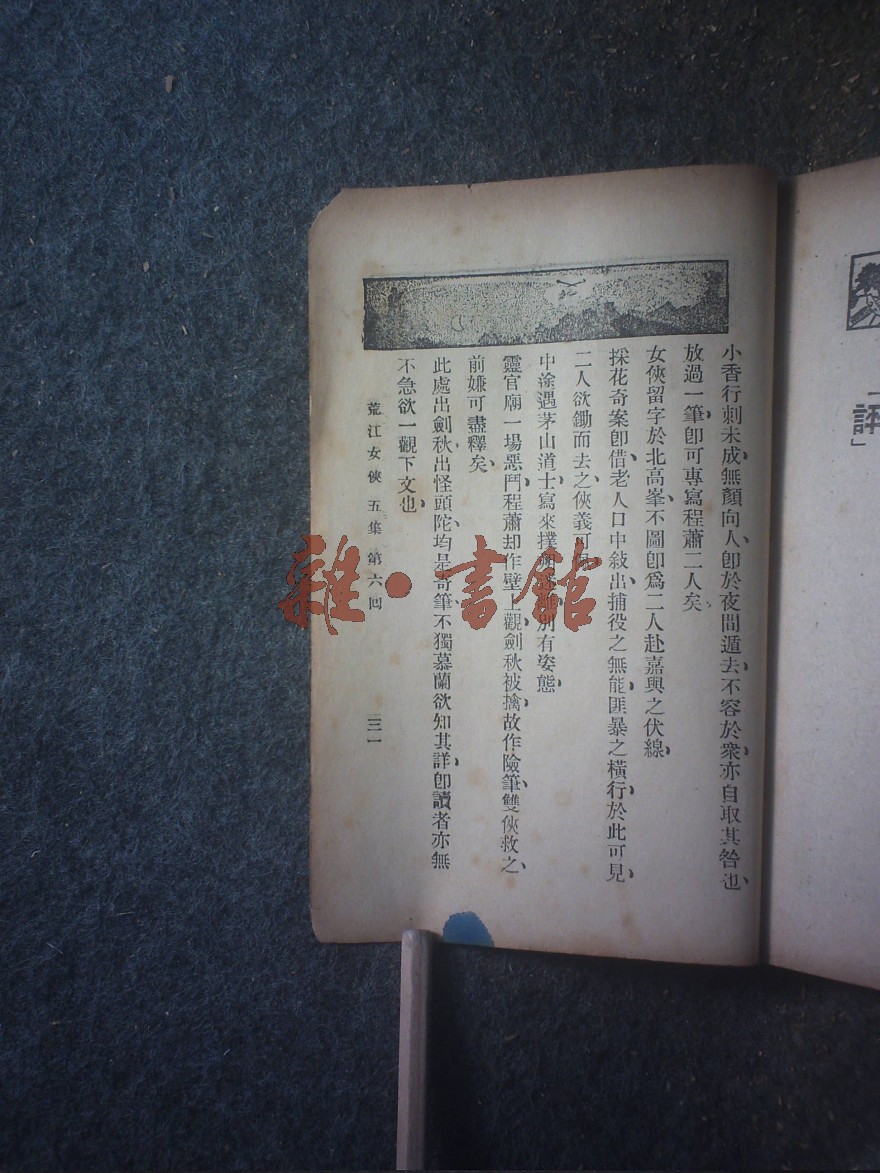 評
小香行刺未成、無顏向人、卽於夜間遁去、不容於衆、亦自取其咎也、
放過一筆、卽可專寫程蕭二人矣、
女俠留字於北高峯、不圖卽爲二人赴嘉興之伏線、
採花奇案、卽借老人口中敍出、捕役之無能、匪暴之橫行、於此可見、
二人欲鋤而去之、俠義可
中途遇茅山道士、寫來撲 別有姿態、
靈官廟一場惡鬥、程蕭却作壁上觀、劍秋被擒、故作險筆、雙俠救之、
前嫌可盡釋矣、
此處出劍秋、出怪頭陀、均是奇筆、不獨慕蘭欲知其詳、卽讀者亦無
不急欲一觀下文也、
荒江女俠 五集 第六回 三一
雜·書館